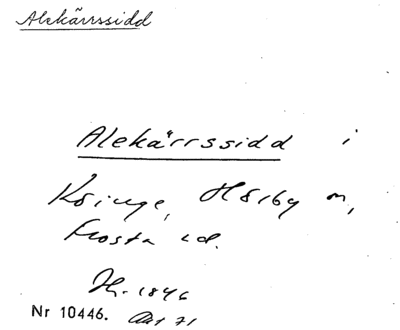 Alekärrssidd
Alekärrssidd i
Köinge, Hörby sn,
Frosta hd.
Hr. 1846
Nr 10446. Akt 71